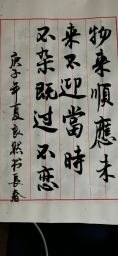 物来順應未
来不迎當時
不杂既过不恋
庚子年夏良然书長春